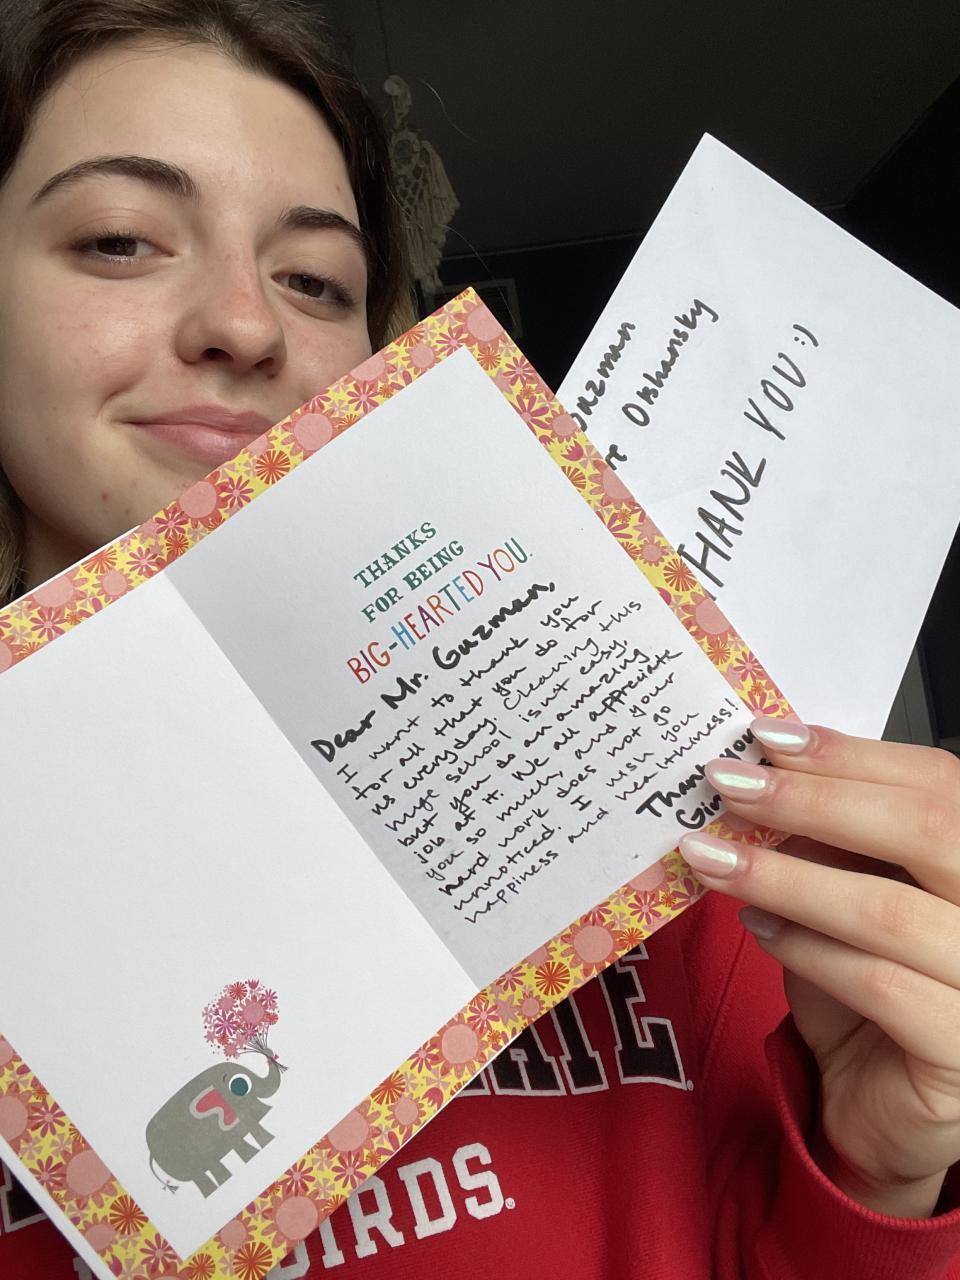 THANKS
FOR BEING
BIG-HEARTED YOU.
Dear Mr. Guzman,
I want to thank you
for all that you do for
us everyday. Cleaning this
huge school isnt easy,
but you do an amazing
job at it. We all appreciate
you so much, and your
hard work does not go
unnoticed. I wish you
happiness and healthiness!
Thank you
Obhansky
THANK YOU :)